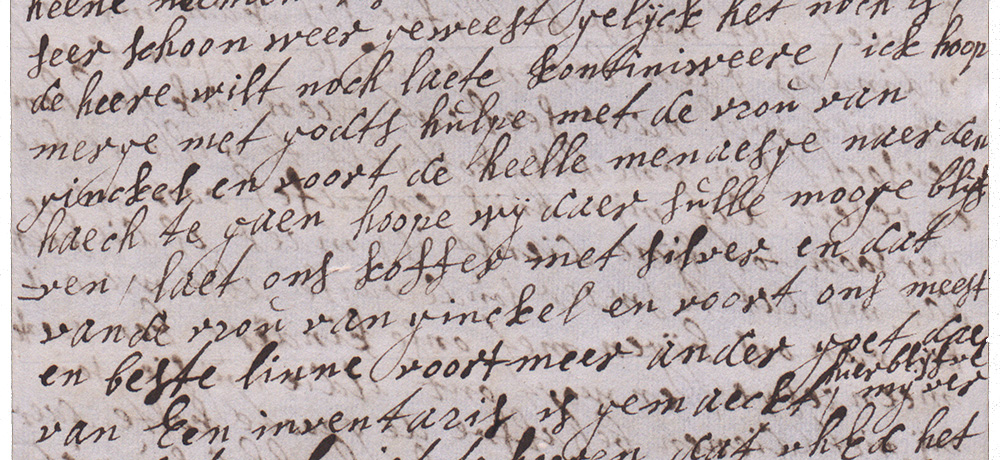 seer schoon weer geweest gelijck het noch is,
de heere wilt noch laete kontiniweere, ick hoop
merge met godts hulpe met de vrou van
ginckel en voort de heelle menaesge naer den
haech te gaen hoope wij daer sulle mooge blijf
ven, laet ons koffer met silver en dat
vande vrou van ginckel en voort ons meest
en beste linne voort meer ander goet daer
van een inventaris is gemaeckt, hier blijve
mij ver
dat uhEd het